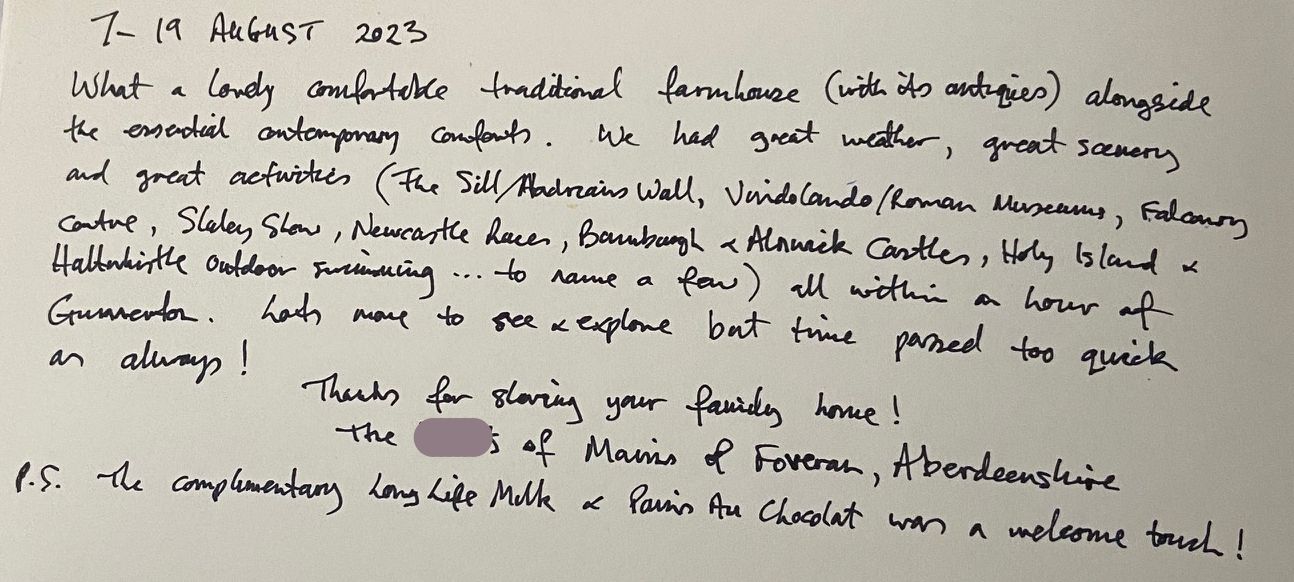 7- 19 AUGUST 2023
What a lovely comfortable traditional farmhouse (with its antiques) alongside
the essential contemporary comforts. We had great weather, great scenery
and great activities (The Sill/Hadrians Wall, Vindolanda/Roman Museums, Falconry
Centre, Slaley Show, Newcastle Races, Bamburgh & Alnwick Castles, Holy Island &
Haltwhistle Outdoor swimming ... to name a few) all within an hour of
Gunnerton. Lots more to see & explore but time passed too quick
as always!
Thanks for sharing your family home!
The s of Mains of Foveran, Aberdeenshire
P.S. The complimentary Long Life Milk & Pains Au Chocolat was a welcome touch!